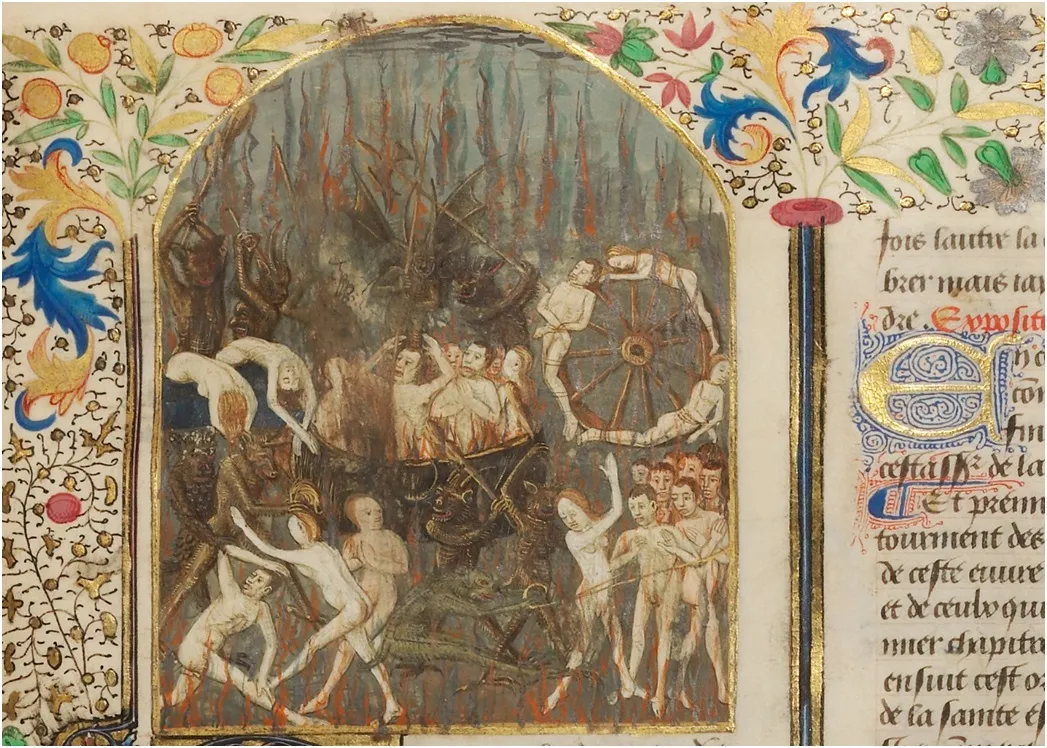 fois lautre la
brer mais
dre. Exposit
E
con
fin
de la
Et prenn
tourment des
de ceste euure
et de ceulx qui
mier chapitre
ensuit cest
de la sainte